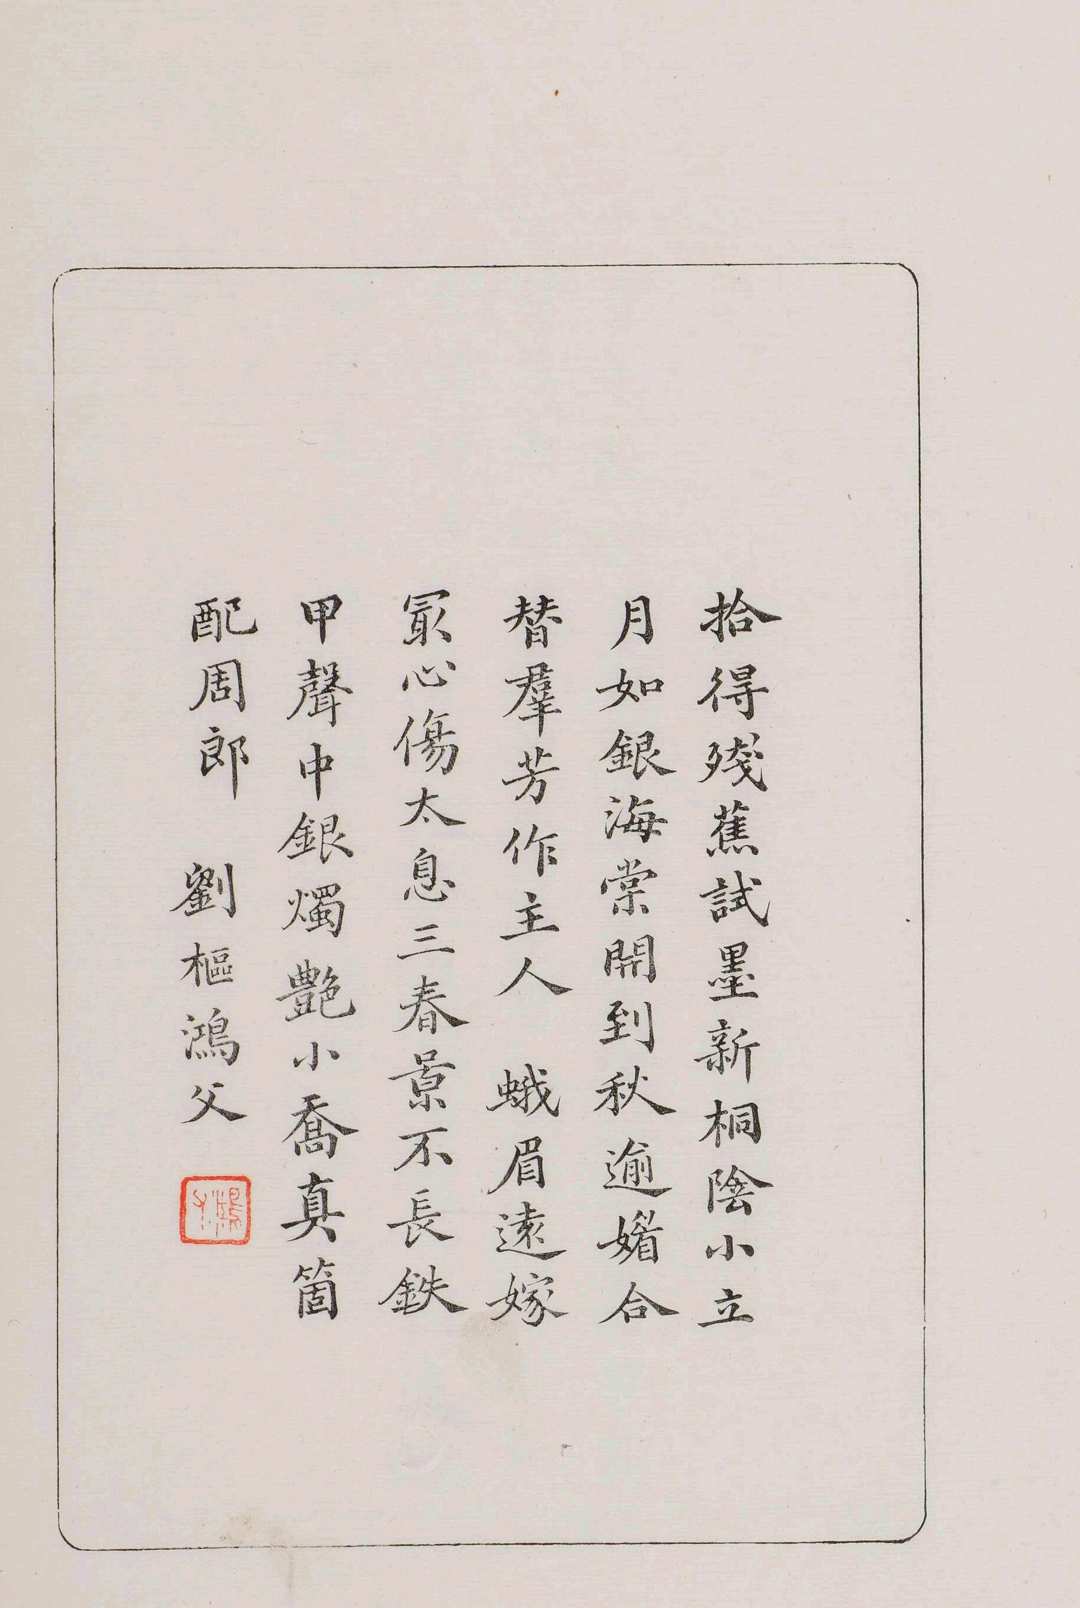 拾得殘蕉試墨新桐陰小立
月如銀海棠開到秋逾媚合
替羣芳作主人　蛾眉遠嫁
冣心傷太息三春景不長鉄
甲聲中銀燭艷小喬真箇
配周郎　劉樞鴻父